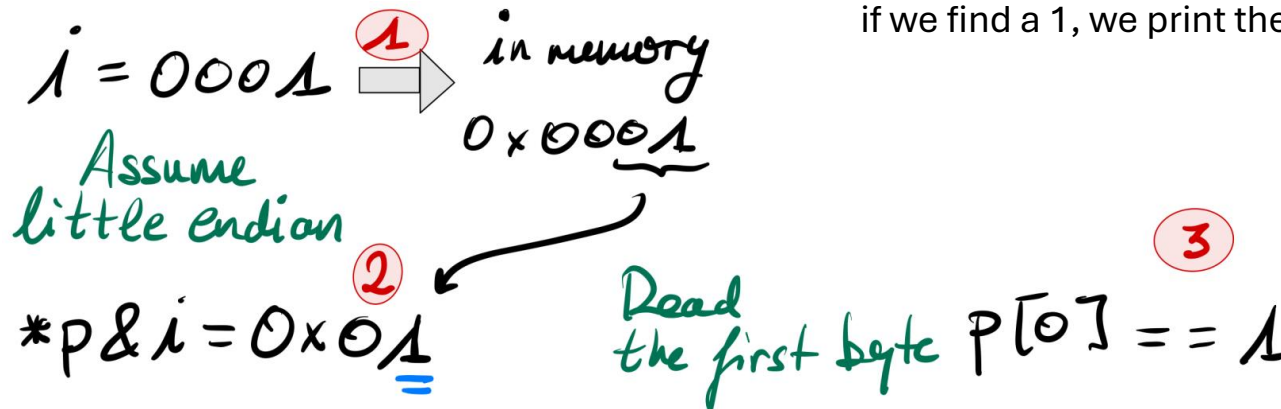 if we find a 1, we print the
i = 0001
1
in memory
0x0001
Assume
little endian
2
*p&i = 0x01
Read
the first byte
3
p[0] == 1